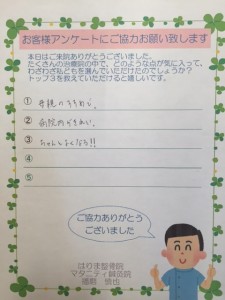 お客様アンケートにご協力お願い致します
本日はご来院ありがとうございました。
たくさんの治療院の中で、どのような点が気に入って、
わざわざ私どもを選んでいただけたのでしょうか?
トップ3を教えていただけると嬉しいです。
① 母親のすすめで。
② 病院内がきれい。
③ ちゃんとよくなる!!
④
⑤
ご協力ありがとう
ございました
はりま整骨院
マタニティ鍼灸院